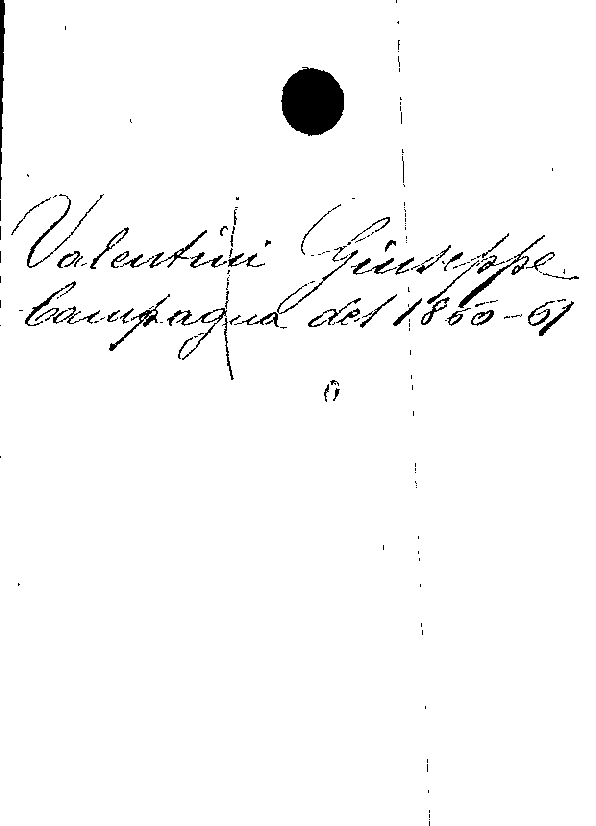 Valentini Giuseppe
Campagna del 1860-61